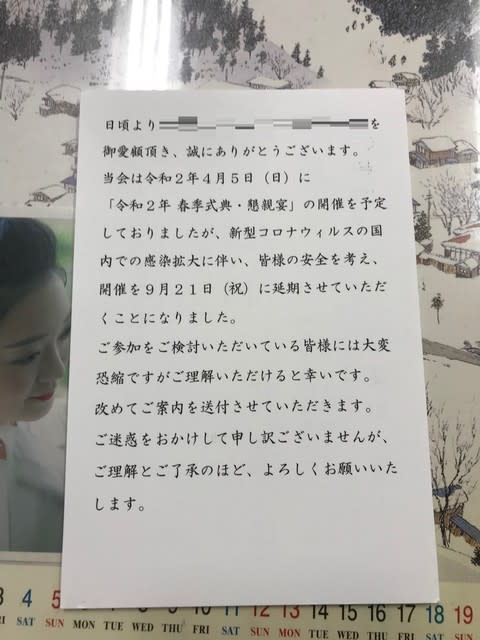 日頃より
を
御愛顧頂き、誠にありがとうございます。
当会は令和２年４月５日（日）に
「令和２年 春季式典・懇親宴」の開催を予定
しておりましたが、新型コロナウィルスの国
内での感染拡大に伴い、皆様の安全を考え、
開催を９月２１日（祝）に延期させていただ
くことになりました。
ご参加をご検討いただいている皆様には大変
恐縮ですがご理解いただけると幸いです。
改めてご案内を送付させていただきます。
ご迷惑をおかけして申し訳ございませんが、
ご理解とご了承のほど、よろしくお願いいた
します。
3 4 5 6 7 8 9 10 11 12 13 14 15 16 17 18 19
FRI SAT SUN MON TUE WED THU FRI SAT SUN MON TUE WED THU FRI SAT SUN